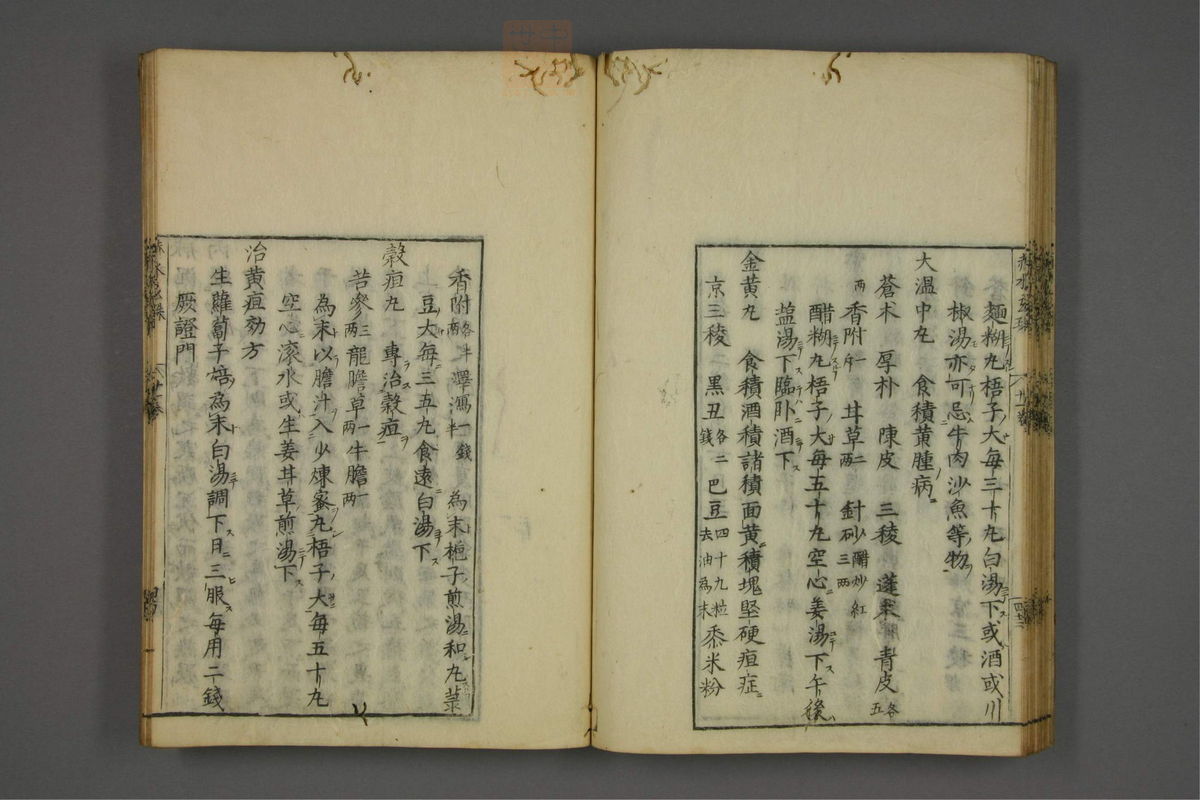 麵糊丸梧子大每三十丸白湯下或酒或川
椒湯亦可忌牛肉沙魚等物
大溫中丸 食積黃腫病
蒼朮 厚朴 陳皮 三稜 蓬朮 青皮各五
兩 香附一斤 甘草二兩 針砂醋炒紅三兩
醋糊丸梧子大每五十丸空心姜湯下午後
盐湯下臨臥酒下
金黃丸 食積酒積諸積面黃積塊堅硬疸症
京三稜 黑丑各二錢 巴豆四十九粒去油為末 黍米粉
香附各半兩 澤瀉一錢半 為末梔子煎湯和丸菉
豆大每三五丸食遠白湯下
穀疸丸 專治穀疸
苦參三兩 龍膽草一兩 牛膽一兩
為末以膽汁入少煉蜜丸梧子大每五十丸
空心滾水或生姜甘草煎湯下
治黃疸効方
生蘿蔔子焙為末白湯調下日三服每用二錢
厥證門